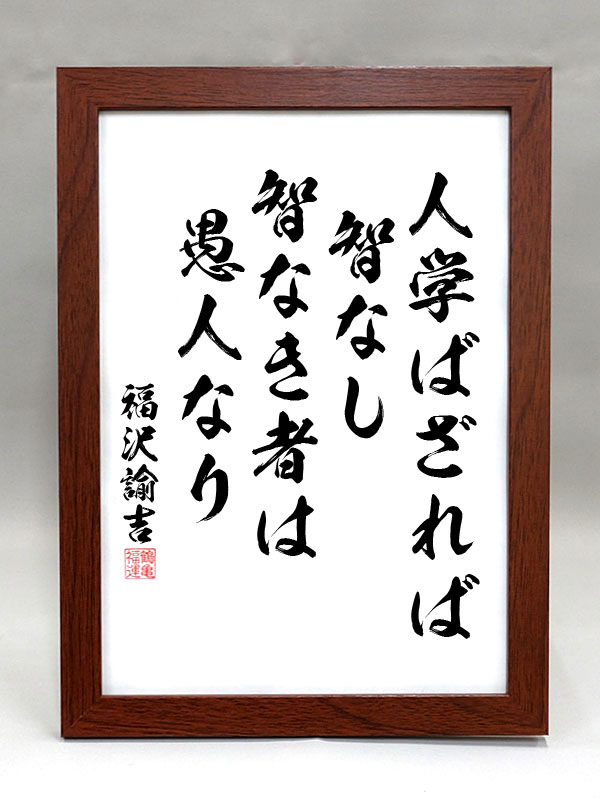 人学ばざれば
智なし
智なき者は
愚人なり
福沢諭吉
鶴亀
福運